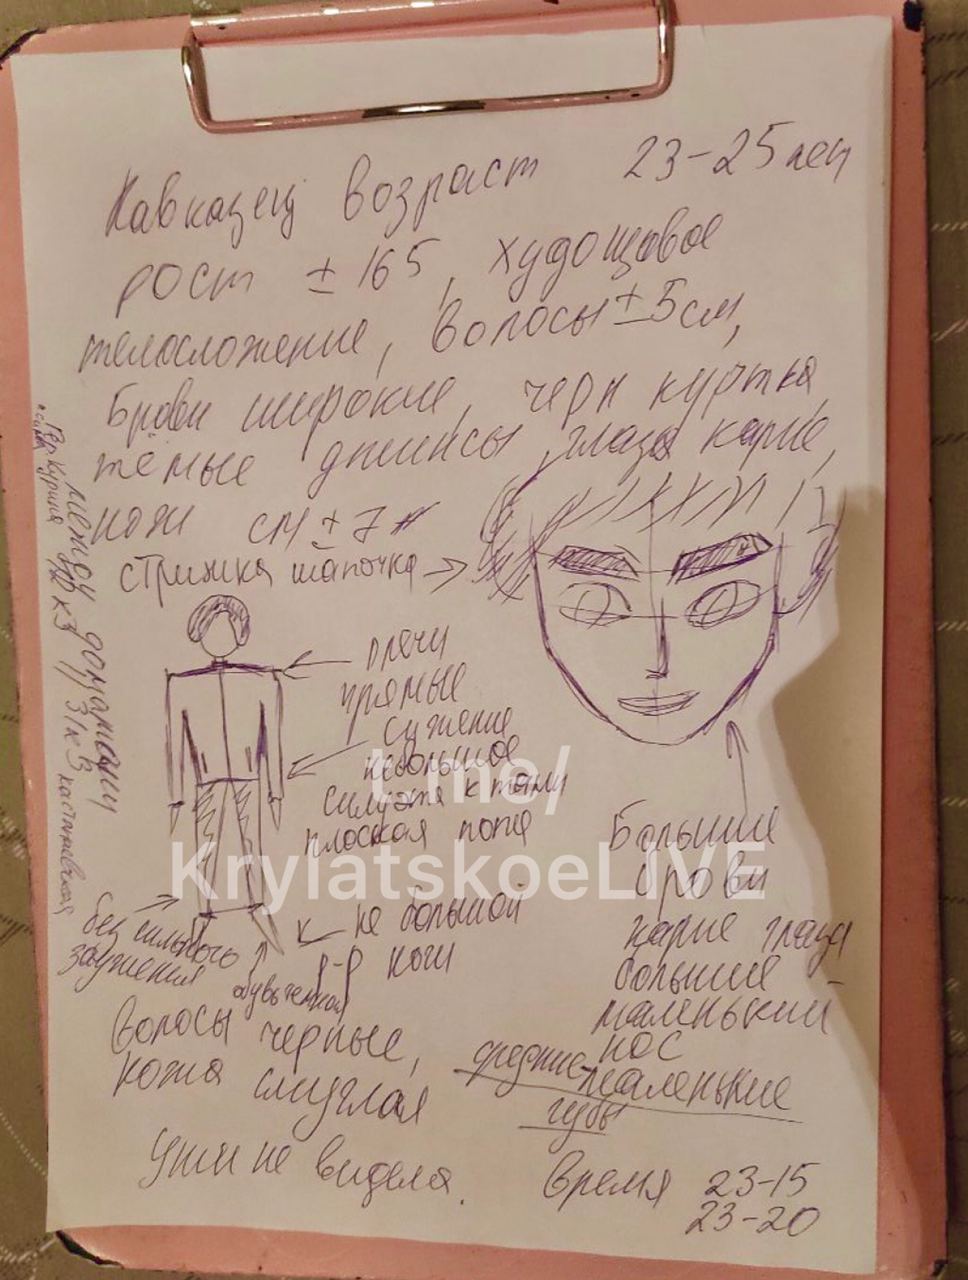 Кавказец возраст 23-25 лет
рост ± 165, худощавое
телосложение, волосы ± 5 см,
брови широкие, черн куртка,
тёмные джинсы, глаза карие,
нож см ± 7
стрижка шапочка →
плечи
прямые
сужение
небольшое
силуэта к талии
плоская попа
не большой
р-р ноги
без сильного
заужения
обувь темная
Большие
брови
карие глаза
большие
маленький
нос
средние-маленькие
губы
Волосы черные,
кожа смуглая
Уши не видела.
Время 23-15
23-20
между домами
31 к 3
t.me/
KrylatskoeLIVE